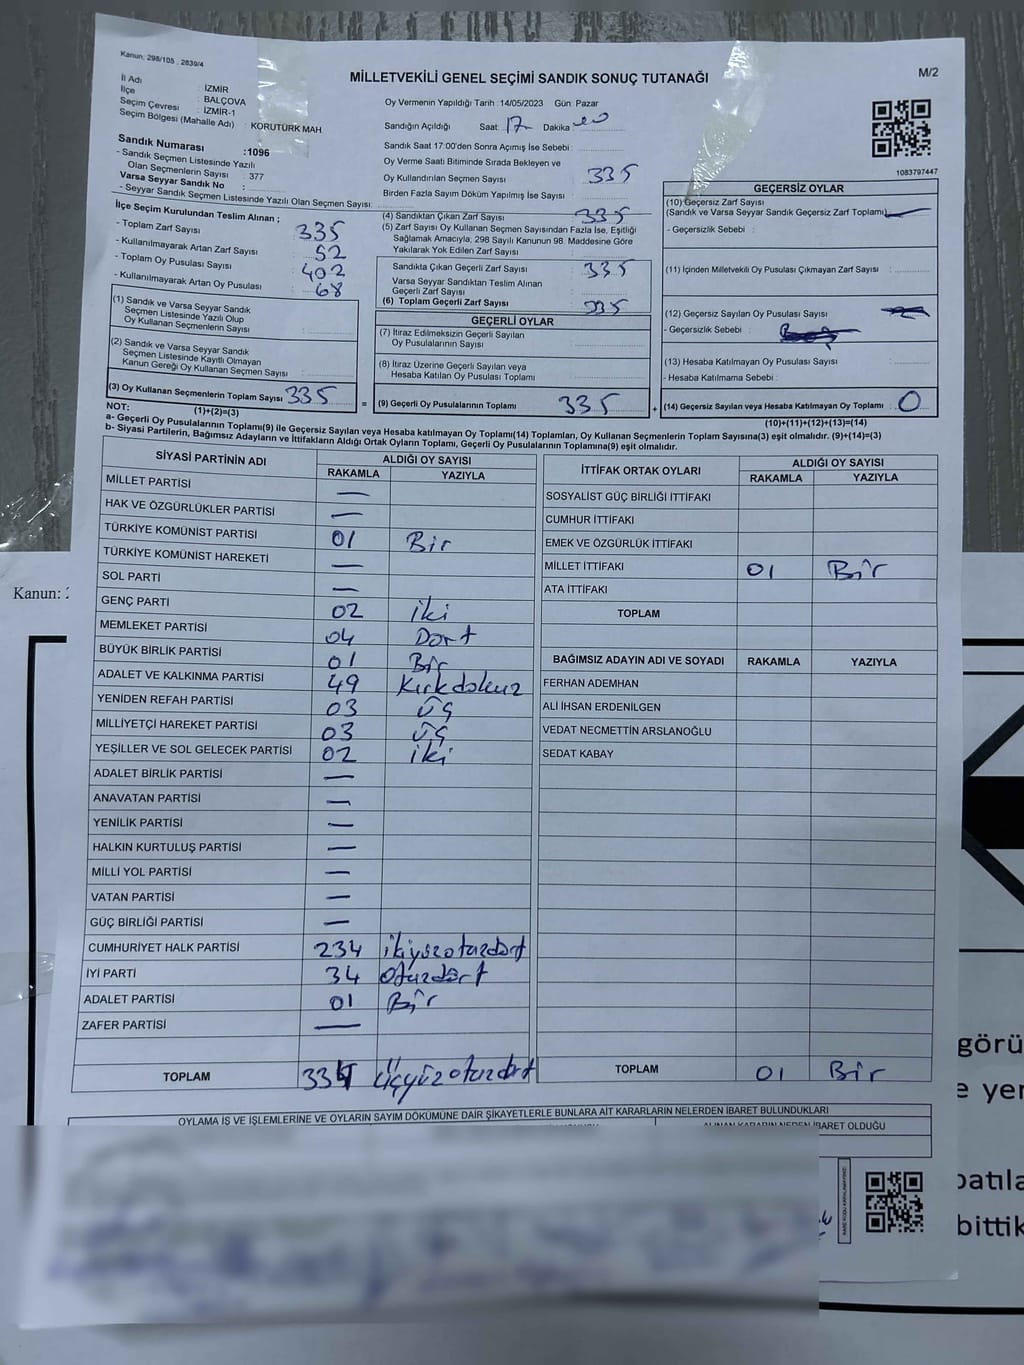 Kanun: 298/105 , 2839/4
MİLLETVEKİLİ GENEL SEÇİMİ SANDIK SONUÇ TUTANAĞI
M/2
İl Adı : İZMİR
İlçe : BALÇOVA
Seçim Çevresi : İZMİR-1
Seçim Bölgesi (Mahalle Adı) : KORUTÜRK MAH
Sandık Numarası :1096
- Sandık Seçmen Listesinde Yazılı
Olan Seçmenlerin Sayısı : 377
Varsa Seyyar Sandık No :
- Seyyar Sandık Seçmen Listesinde Yazılı Olan Seçmen Sayısı:
İlçe Seçim Kurulundan Teslim Alınan ;
- Toplam Zarf Sayısı : 335
- Kullanılmayarak Artan Zarf Sayısı : 52
- Toplam Oy Pusulası Sayısı : 402
- Kullanılmayarak Artan Oy Pusulası : 68
(1) Sandık ve Varsa Seyyar Sandık
Seçmen Listesinde Yazılı Olup
Oy Kullanan Seçmenlerin Sayısı :
(2) Sandık ve Varsa Seyyar Sandık
Seçmen Listesinde Kayıtlı Olmayan
Kanun Gereği Oy Kullanan Seçmen Sayısı :
(3) Oy Kullanan Seçmenlerin Toplam Sayısı : 335
(1)+(2)=(3)
Oy Vermenin Yapıldığı Tarih : 14/05/2023 Gün: Pazar
Sandığın Açıldığı Saat 17 Dakika
Sandık Saat 17:00'den Sonra Açımış İse Sebebi :
Oy Verme Saati Bitiminde Sırada Bekleyen ve
Oy Kullandırılan Seçmen Sayısı : 335
Birden Fazla Sayım Döküm Yapılmış İse Sayısı :
(4) Sandıktan Çıkan Zarf Sayısı : 335
(5) Zarf Sayısı Oy Kullanan Seçmen Sayısından Fazla İse, Eşitliği
Sağlamak Amacıyla, 298 Sayılı Kanunun 98. Maddesine Göre
Yakılarak Yok Edilen Zarf Sayısı :
Sandıkta Çıkan Geçerli Zarf Sayısı : 335
Varsa Seyyar Sandıktan Teslim Alınan
Geçerli Zarf Sayısı :
(6) Toplam Geçerli Zarf Sayısı : 335
GEÇERLİ OYLAR
(7) İtiraz Edilmeksizin Geçerli Sayılan
Oy Pusulalarının Sayısı :
(8) İtiraz Üzerine Geçerli Sayılan veya
Hesaba Katılan Oy Pusulası Toplamı :
= (9) Geçerli Oy Pusulalarının Toplamı : 335 +
1083797447
GEÇERSİZ OYLAR
(10) Geçersiz Zarf Sayısı
(Sandık ve Varsa Seyyar Sandık Geçersiz Zarf Toplamı) :
- Geçersizlik Sebebi :
(11) İçinden Milletvekili Oy Pusulası Çıkmayan Zarf Sayısı :
(12) Geçersiz Sayılan Oy Pusulası Sayısı :
- Geçersizlik Sebebi :
(13) Hesaba Katılmayan Oy Pusulası Sayısı :
- Hesaba Katılmama Sebebi :
(14) Geçersiz Sayılan veya Hesaba Katılmayan Oy Toplamı : 0
(10)+(11)+(12)+(13)=(14)
NOT:
a- Geçerli Oy Pusulalarının Toplamı(9) ile Geçersiz Sayılan veya Hesaba katılmayan Oy Toplamı(14) Toplamları, Oy Kullanan Seçmenlerin Toplam Sayısına(3) eşit olmalıdır. (9)+(14)=(3)
b- Siyasi Partilerin, Bağımsız Adayların ve İttifakların Aldığı Ortak Oyların Toplamı, Geçerli Oy Pusulalarının Toplamına(9) eşit olmalıdır.
SİYASİ PARTİNİN ADI ALDIĞI OY SAYISI
RAKAMLA YAZIYLA
MİLLET PARTİSİ —
HAK VE ÖZGÜRLÜKLER PARTİSİ —
TÜRKİYE KOMÜNİST PARTİSİ 01 Bir
TÜRKİYE KOMÜNİST HAREKETİ —
SOL PARTİ —
GENÇ PARTİ 02 iki
MEMLEKET PARTİSİ 04 Dört
BÜYÜK BİRLİK PARTİSİ 01 Bir
ADALET VE KALKINMA PARTİSİ 49 Kırkdokuz
YENİDEN REFAH PARTİSİ 03 üç
MİLLİYETÇİ HAREKET PARTİSİ 03 üç
YEŞİLLER VE SOL GELECEK PARTİSİ 02 iki
ADALET BİRLİK PARTİSİ —
ANAVATAN PARTİSİ —
YENİLİK PARTİSİ —
HALKIN KURTULUŞ PARTİSİ —
MİLLİ YOL PARTİSİ —
VATAN PARTİSİ —
GÜÇ BİRLİĞİ PARTİSİ —
CUMHURİYET HALK PARTİSİ 234 ikiyüzotuzdört
İYİ PARTİ 34 otuzdört
ADALET PARTİSİ 01 Bir
ZAFER PARTİSİ —
TOPLAM 334 üçyüzotuzdört
İTTİFAK ORTAK OYLARI ALDIĞI OY SAYISI
RAKAMLA YAZIYLA
SOSYALİST GÜÇ BİRLİĞİ İTTİFAKI
CUMHUR İTTİFAKI
EMEK VE ÖZGÜRLÜK İTTİFAKI
MİLLET İTTİFAKI 01 Bir
ATA İTTİFAKI
TOPLAM
BAĞIMSIZ ADAYIN ADI VE SOYADI RAKAMLA YAZIYLA
FERHAN ADEMHAN
ALİ İHSAN ERDENİLGEN
VEDAT NECMETTİN ARSLANOĞLU
SEDAT KABAY
TOPLAM 01 Bir
OYLAMA İŞ VE İŞLEMLERİNE VE OYLARIN SAYIM DÖKÜMÜNE DAİR ŞİKAYETLERLE BUNLARA AİT KARARLARIN NELERDEN İBARET BULUNDUKLARI
ALINAN KARARIN NEDEN İBARET OLDUĞU
Kanun: 2
görü
e yer
patıla
bittik